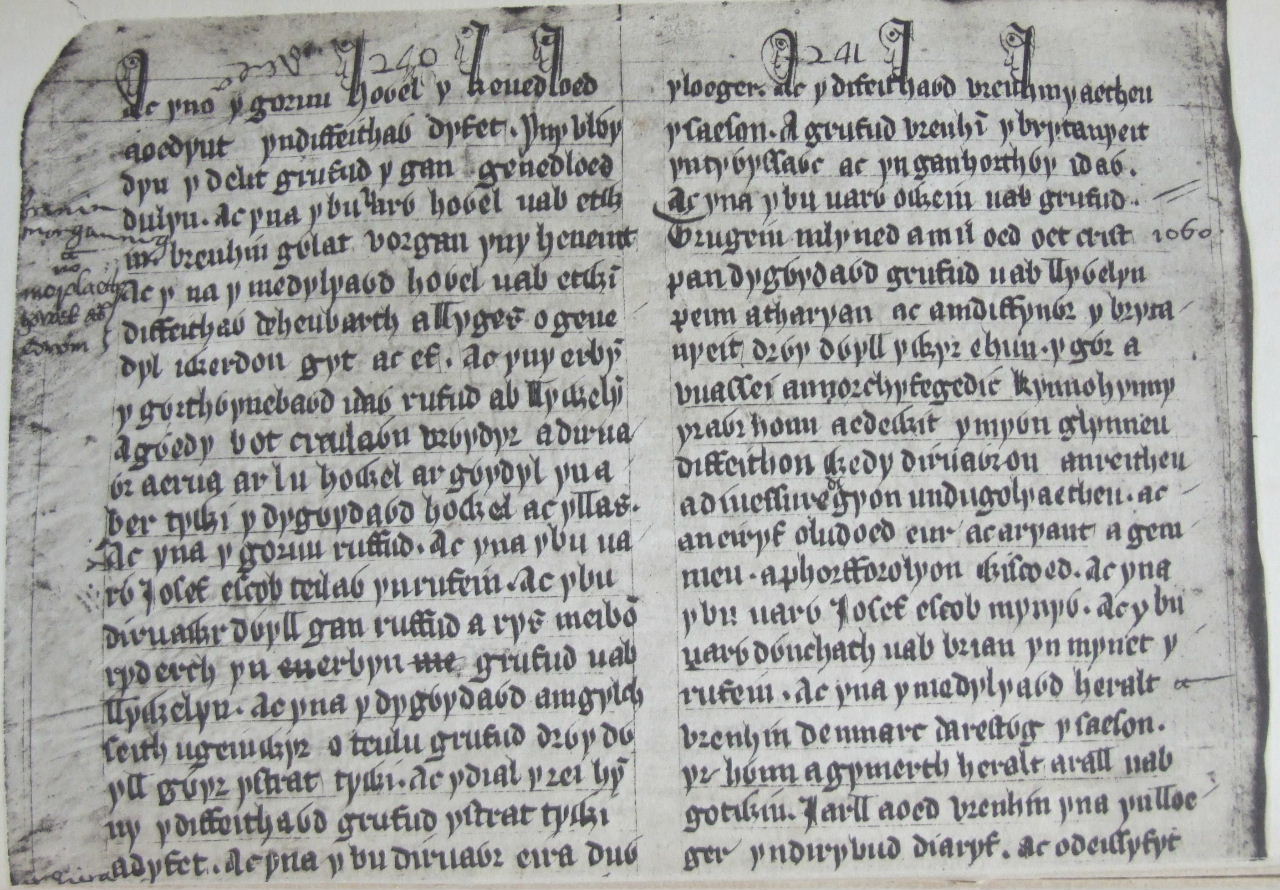 240
Ac yno y goruu howel y kenedloed
aoedynt yndiffeithaw dyfet. Yny vlwy
dyn y delit grufud y gan genedloed
dulyn. Ac yna y bu uarw howel uab etwin
brenhin gwlat vorgan yny heneint
Ac y na y medylyawd howel uab etwin
diffeithaw deheubarth a llyges o gene
dyl iwerdon gyt ac ef. Ac yny erbyn
y gwrthwynebawd idaw rufud ab llywelyn
Agwedy bot creulawn vrwydyr a dirua
wr aerua ar lu howel ar gwydyl yn a
ber tywi y dygwydawd howel ac yllas.
Ac yna y goruu ruffud. Ac yna y bu ua
rw Josef escob teilaw ynrufein. Ac y bu
diruawr dwyll gan ruffud a rys meibon
ryderch yn erbyn grufud uab
llywelyn. Ac yna y dygwydawd amgylch
seith ugeinwyr o teulu grufud drwy dw
yll gwyr ystrat tywi. Ac y dial y rei hyn
ny y diffeithawd grufud ystrat tywi
a dyfet. Ac yna y bu diruawr eira duw
241
yloeger. Ac y diffeithawd vrenhinyaetheu
y saeson. A grufud vrenhin y brytanyeit
yntywyssawc ac yn ganhorthwy idaw.
Ac yna y bu uarw owein uab grufud.
Trugein mlyned a mil oed oet crist
1060
pan dygwydawd grufud uab llywelyn
penn a tharyan ac amdiffynwr y bryta
nyeit drwy dwyll y wyr ehun. y gwr a
vuassei annorchyfegedic kynno hynny
yr awr honn a edewit y mywn glynneu
diffeithon wedy diruawron anreitheu
a diuessuredigyon uudugolyaetheu. ac
aneiryf oludoed eur ac aryant a gem
meu. a phorfforolyon wiscoed. Ac yna
y bu uarw Josef escob mynyw. Ac y bu
uarw dwnchath uab brian yn mynet y
rufein. Ac yna y medylyawd heralt
brenhin denmarc darestwg y saeson.
yr hwnn a gymerth heralt arall uab
gotwin. Jarll aoed vrenhin yna ynlloe
ger yn dirybud diaryf. ac o deissyfyt